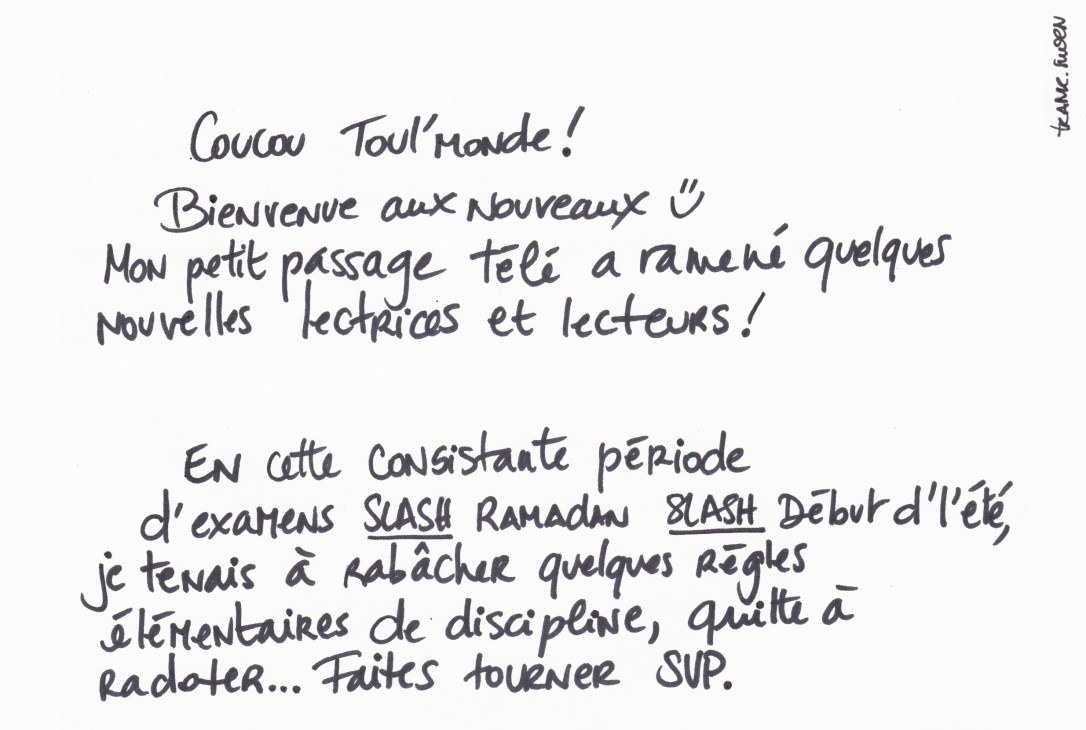 Coucou Toul'monde !
Bienvenue aux nouveaux
Mon petit passage télé a ramené quelques
nouvelles lectrices et lecteurs !
En cette consistante période
d'examens SLASH Ramadan SLASH Début d'l'été,
je tenais à rabâcher quelques règles
élémentaires de discipline, quitte à
radoter... Faites tourner SVP.